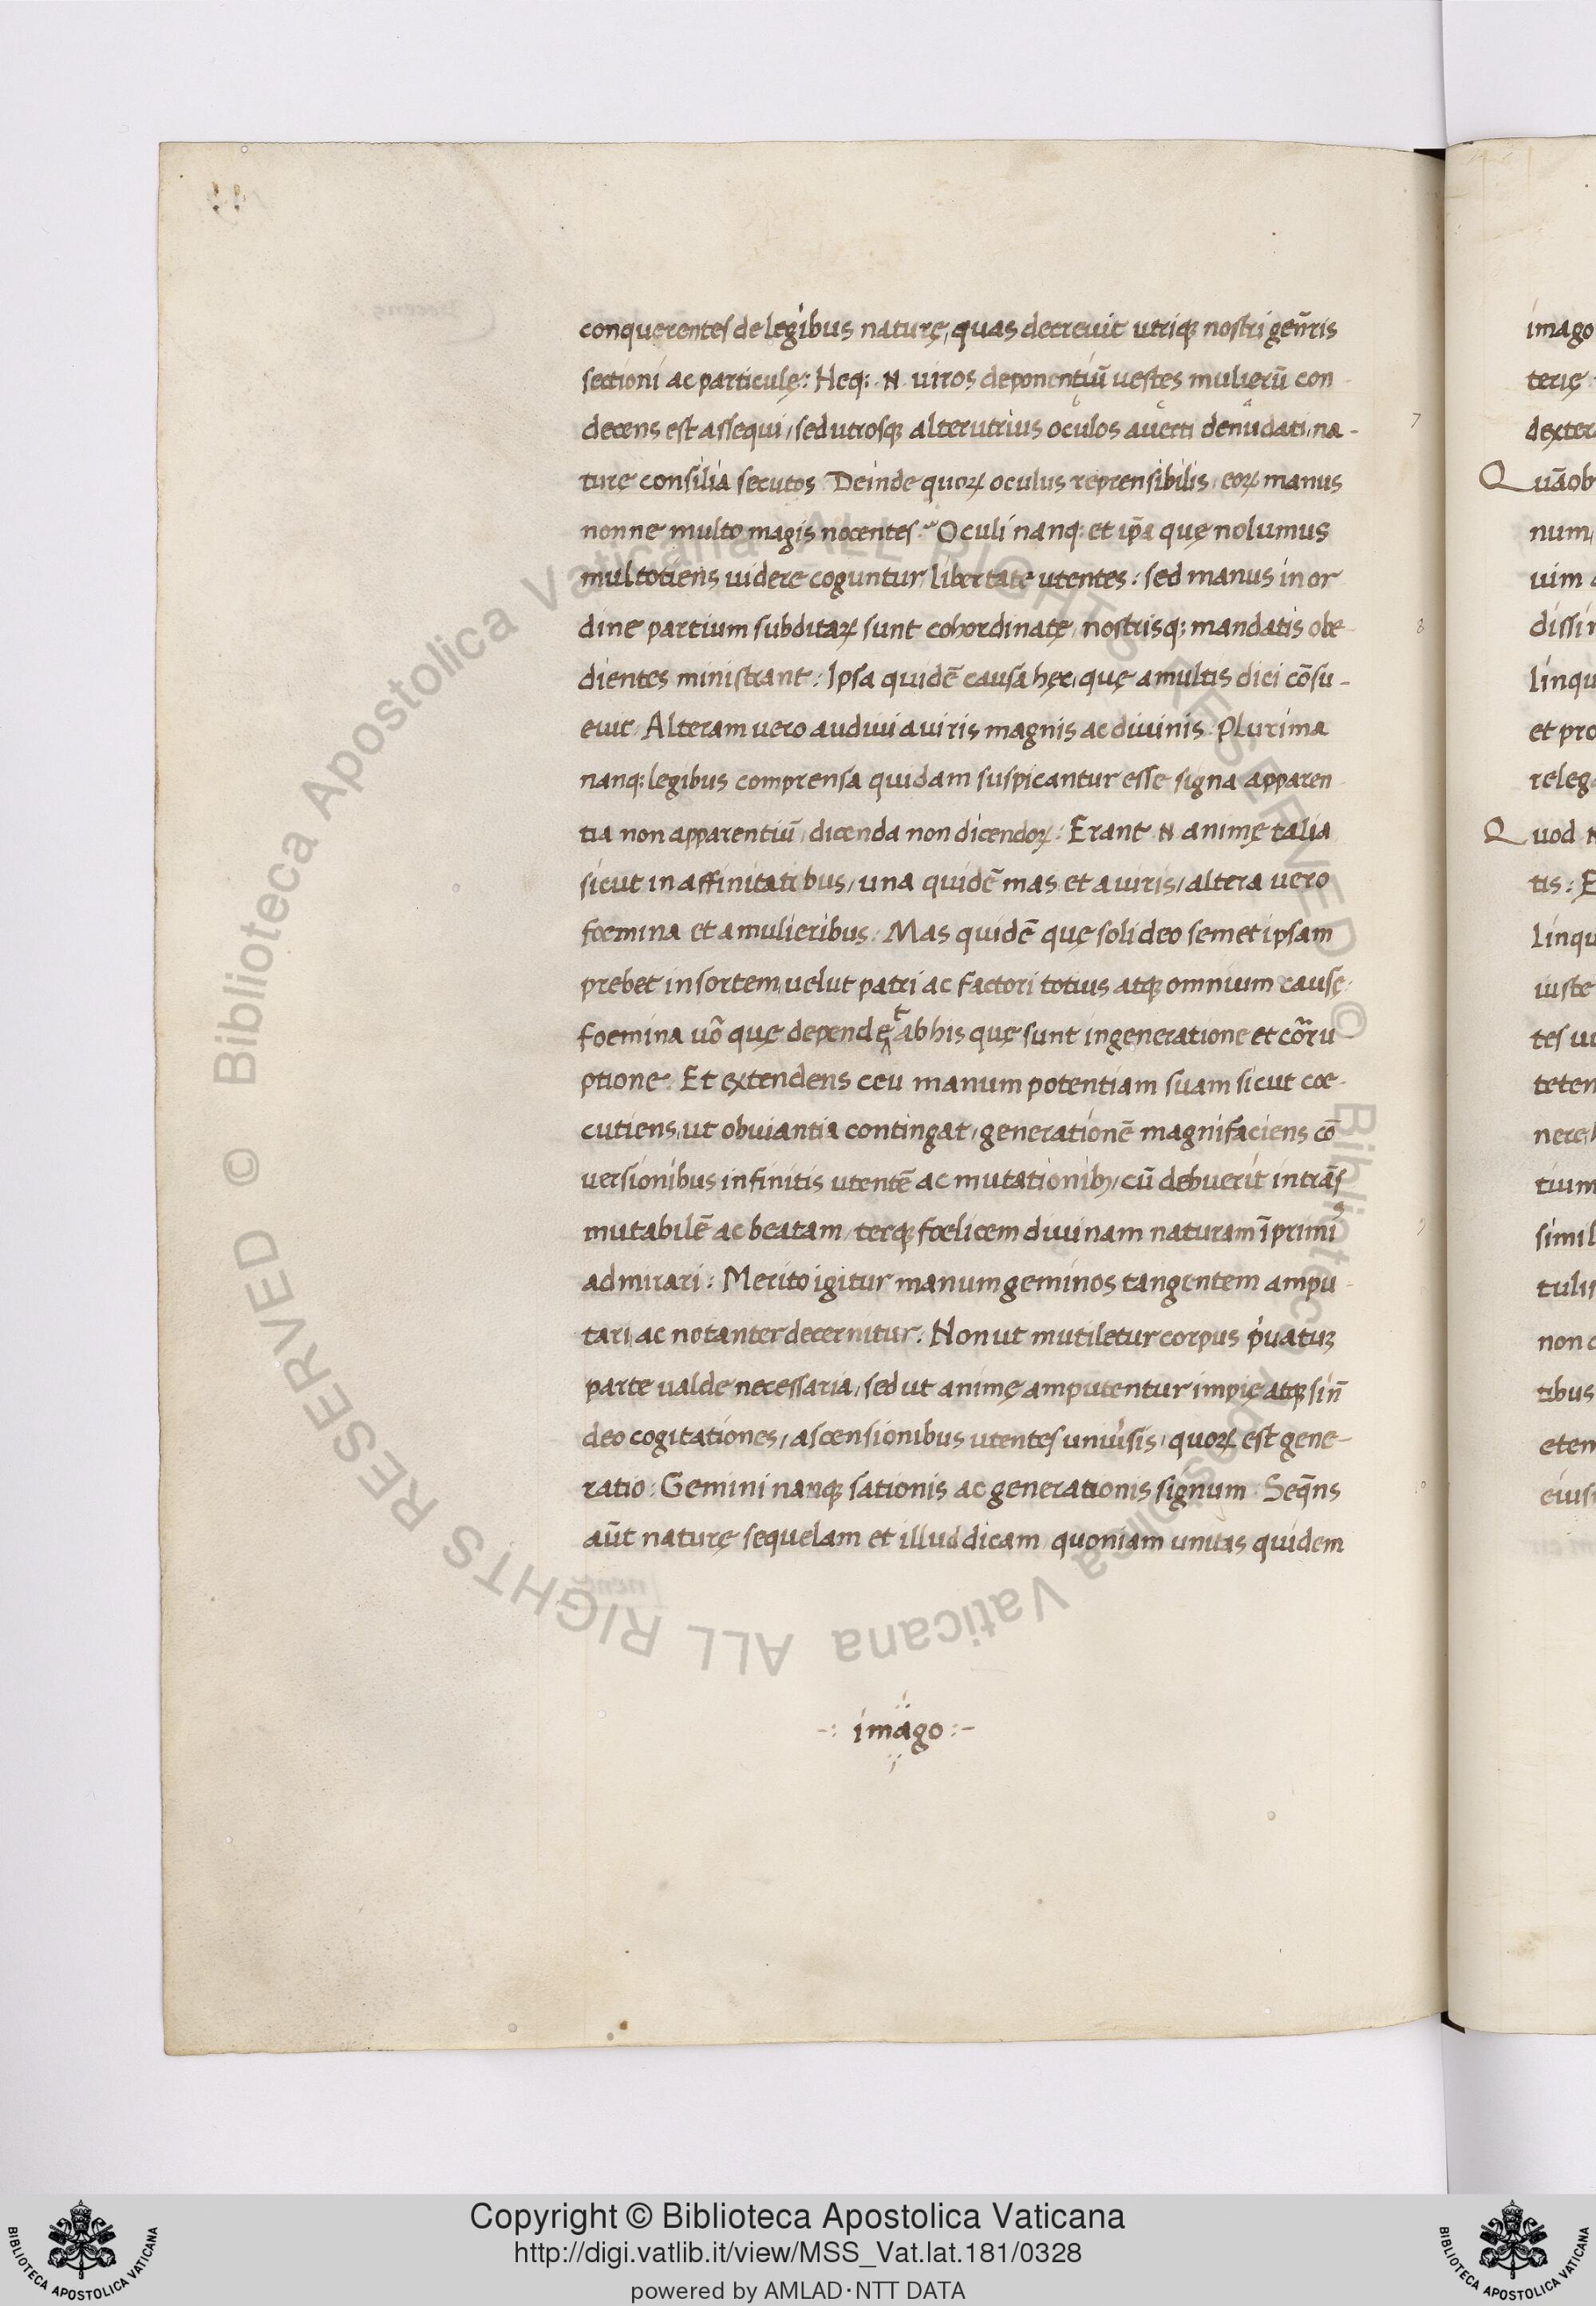 conquerentes de legibus naturę, quas decrevit utriqꝫ nostri geñris
sectioni ac particulę: Neqꝫ .N. viros deponentiū vestes mulierū con
decens est assequi, sed utrosqꝫ alterutrius oculos averti denudati, na-
ture consilia secutos. Deinde quoꝝ oculus reprensibilis, eoꝝ manus
nonne multo magis nocentes? Oculi nanqꝫ et ip̄a quę nolumus
multotiens videre coguntur, libertate utentes: sed manus in or
dine partium subditaꝝ sunt cohordinatę, nostrisqꝫ mandatis obe
dientes ministrant: Ipsa quidē causa hęc, quę a multis dici cōsu-
evit. Alteram vero audivi a viris magnis ac divinis. Plurima
nanqꝫ legibus comprensa quidam suspicantur esse signa apparen
tia non apparentiū, dicenda non dicendoꝝ: Erant .N. animę talia
sicut in affinitatibus, una quidē mas et a viris, altera vero
foemina et a mulieribus: Mas quidē quę soli deo semet ipsam
prebet in sortem, velut patri ac factori totius atqꝫ omnium causę:
foemina vō quę dependęt ab his quę sunt in generatione et cōrru
ptione. Et extendens ceu manum potentiam suam sicut coe-
cutiens, ut obviantia contingat, generationē magnifaciens cō
versionibus infinitis utentē ac mutationibꝫ, cū debuerit intrās
mutabilē ac beatam, terqꝫ foelicem divinam naturam īprimis
admirari: Merito igitur manum geminos tangentem ampu
tari, ac notanter decernitur: Non ut mutiletur corpus p̀vatuꝛ
parte valde necessaria, sed ut animę amputentur impię atqꝫ sin̄
deo cogitationes, ascensionibus utentes univ̀sis, quoꝝ est gene-
ratio: Gemini nanqꝫ sationis ac generationis signum. Seq̄ns
aūt naturę sequelam et illud dicam, quoniam unitas quidem
-: imago :-
imago
terię
dexter
Quāob
num,
vim
dissi
linqu
et pro
releg
Quod
tis: E
linqu
iuste
tes
teten
nere,
tium
simil
tulis
non
tibus
eten
eius
7
8
Copyright © Biblioteca Apostolica Vaticana
http://digi.vatlib.it/view/MSS_Vat.lat.181/0328
powered by AMLAD·NTT DATA
BIBLIOTECA APOSTOLICA VATICANA
BIBLIOTECA APOSTOLICA VATICANA
© Biblioteca Apostolica Vaticana ALL RIGHTS RESERVED © Biblioteca Apostolica Vaticana ALL RIGHTS RESERVED